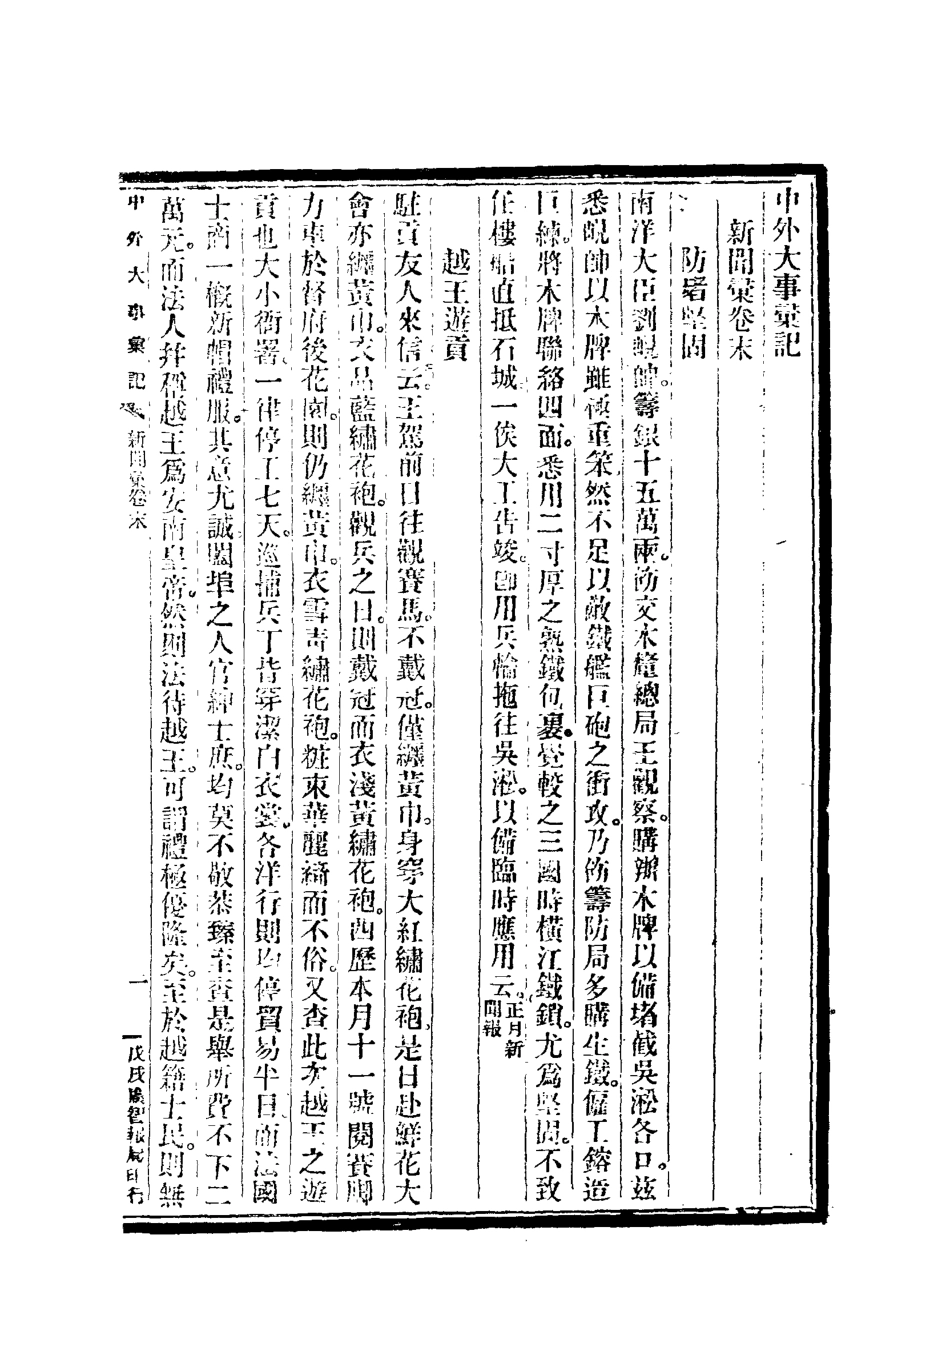 中外大事彙記
新聞彙卷末
防堵堅固
南洋大臣劉峴帥。籌銀十五萬兩。飭交木釐總局王觀察。購辦木牌以備堵截吳淞各口。茲
悉峴帥以木牌雖極重笨。然不足以敵鐵艦巨砲之衝攻。乃飭籌防局多購生鐵。僱工鎔造
巨練。將木牌聯絡四面。悉用二寸厚之熟鐵包裹。覺較之三國時橫江鐵鎖。尤爲堅固。不致
任樓船直抵石城。一俟大工告竣。卽用兵輪拖往吳淞。以備臨時應用云。正月新聞報
越王遊貢
駐貢友人來信云。王駕前日往觀賽馬。不戴冠。僅纏黃巾。身穿大紅繡花袍。是日赴鮮花大
會亦纏黃巾。衣品藍繡花袍。觀兵之日。則戴冠而衣淺黃繡花袍。西歷本月十一號閱賽脚
力車於督府後花園。則仍纏黃巾。衣雪靑繡花袍。粧束華麗。綺而不俗。又查此次越王之遊
貢也大小衙署。一律停工七天。巡捕兵丁皆穿潔白衣裳。各洋行則均停貿易半日。而法國
士商一槪新帽禮服。其意尤誠。闔埠之人官紳士庶。均莫不敬恭臻至。查是舉所費不下二
萬元。而法人幷稱越王爲安南皇帝。然則法待越王。可謂禮極優隆矣。至於越籍士民。則無
中外大事彙記 新聞彙卷末 一 戊戌廣智報局印行